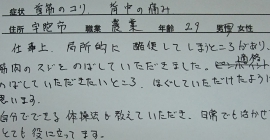 症状 首筋のコリ 背中の痛み
住所 宇陀市 職業 農業 年齢 29 男 女性
仕事上、局所的に酷使してしまうところがあり、
筋肉のスジをのばしていただきました。適格に
のばしていただきたいところ、ほぐしていただけたように
思います。
自分でできる体操法も教えていただき、日常でも活かせ
とても役に立ってます。